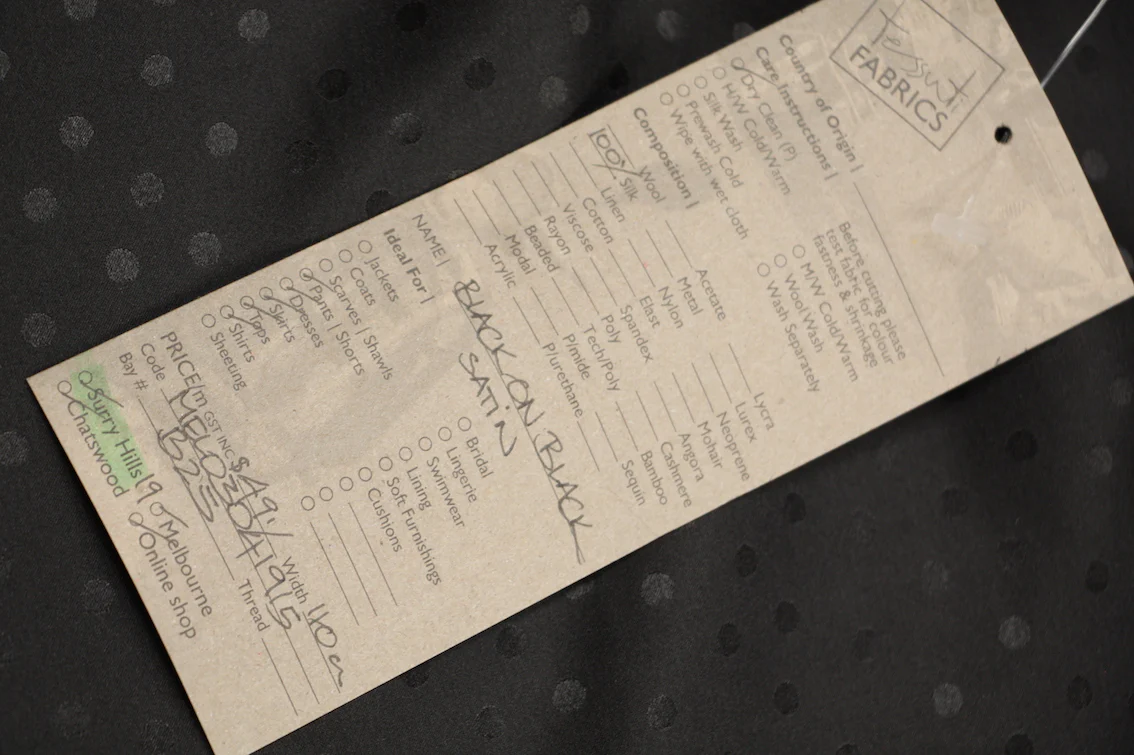 Tessuti
FABRICS
Country of Origin |
Care Instructions |
Dry Clean (P)
H/W Cold/Warm
Silk Wash
Prewash Cold
Wipe with wet cloth
Before cutting please
test fabric for colour
fastness & shrinkage
M/W Cold/Warm
Wool Wash
Wash Separately
Composition |
Wool
100% Silk
Linen
Cotton
Viscose
Rayon
Beaded
Modal
Acrylic
Acetate
Metal
Nylon
Elast
Spandex
Poly
Tech/Poly
P/mide
P/urethane
Lycra
Lurex
Neoprene
Mohair
Angora
Cashmere
Bamboo
Sequin
NAME | BLACK ON BLACK
SATIN
Ideal For |
Jackets
Coats
Scarves | Shawls
Pants | Shorts
Dresses
Skirts
Tops
Shirts
Sheeting
Bridal
Lingerie
Swimwear
Lining
Soft Furnishings
Cushions
PRICE/m GST INC $49. Width 110 cm
Code MEL0304191S
Bay # Thread
Surry Hills Melbourne
Chatswood Online shop